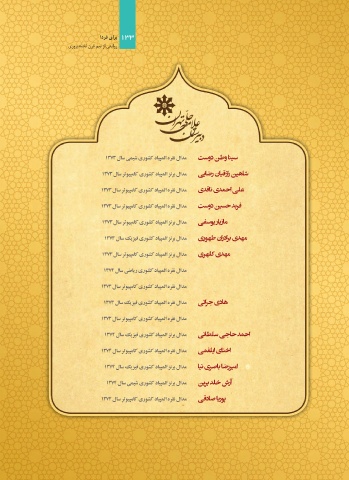 ۱۳۳
برای فردا
روایتی از نیم قرن
دبیرستان علامه حلی تهران
سینا وطن دوست مدال نقره المپیاد کشوری شیمی سال ۱۳۷۳
شاهین رازقیان رضایی مدال برنز المپیاد کشوری کامپیوتر سال ۱۳۷۳
علی احمدی نافذی مدال نقره المپیاد کشوری کامپیوتر سال ۱۳۷۳
فرید حسین دوست مدال برنز المپیاد کشوری کامپیوتر سال ۱۳۷۳
مازیار یوسفی مدال نقره المپیاد کشوری کامپیوتر سال ۱۳۷۳
مهدی برادران طهوری مدال برنز المپیاد کشوری فیزیک سال ۱۳۷۳
مهدی کلهری مدال برنز المپیاد کشوری کامپیوتر سال ۱۳۷۳
مدال نقره المپیاد کشوری ریاضی سال ۱۳۷۴
مدال نقره المپیاد کشوری کامپیوتر سال ۱۳۷۳
هادی جراتی مدال نقره المپیاد کشوری فیزیک سال ۱۳۷۴
مدال نقره المپیاد کشوری کامپیوتر سال ۱۳۷۳
احمد حاجی سلطانی مدال برنز المپیاد کشوری فیزیک سال ۱۳۷۴
مدال نقره المپیاد کشوری کامپیوتر سال ۱۳۷۴
امیررضا باصری نیا مدال برنز المپیاد کشوری فیزیک سال ۱۳۷۴
آرش خلد برین مدال برنز المپیاد کشوری شیمی سال ۱۳۷۴
پوریا صادقی مدال نقره المپیاد کشوری کامپیوتر سال ۱۳۷۴